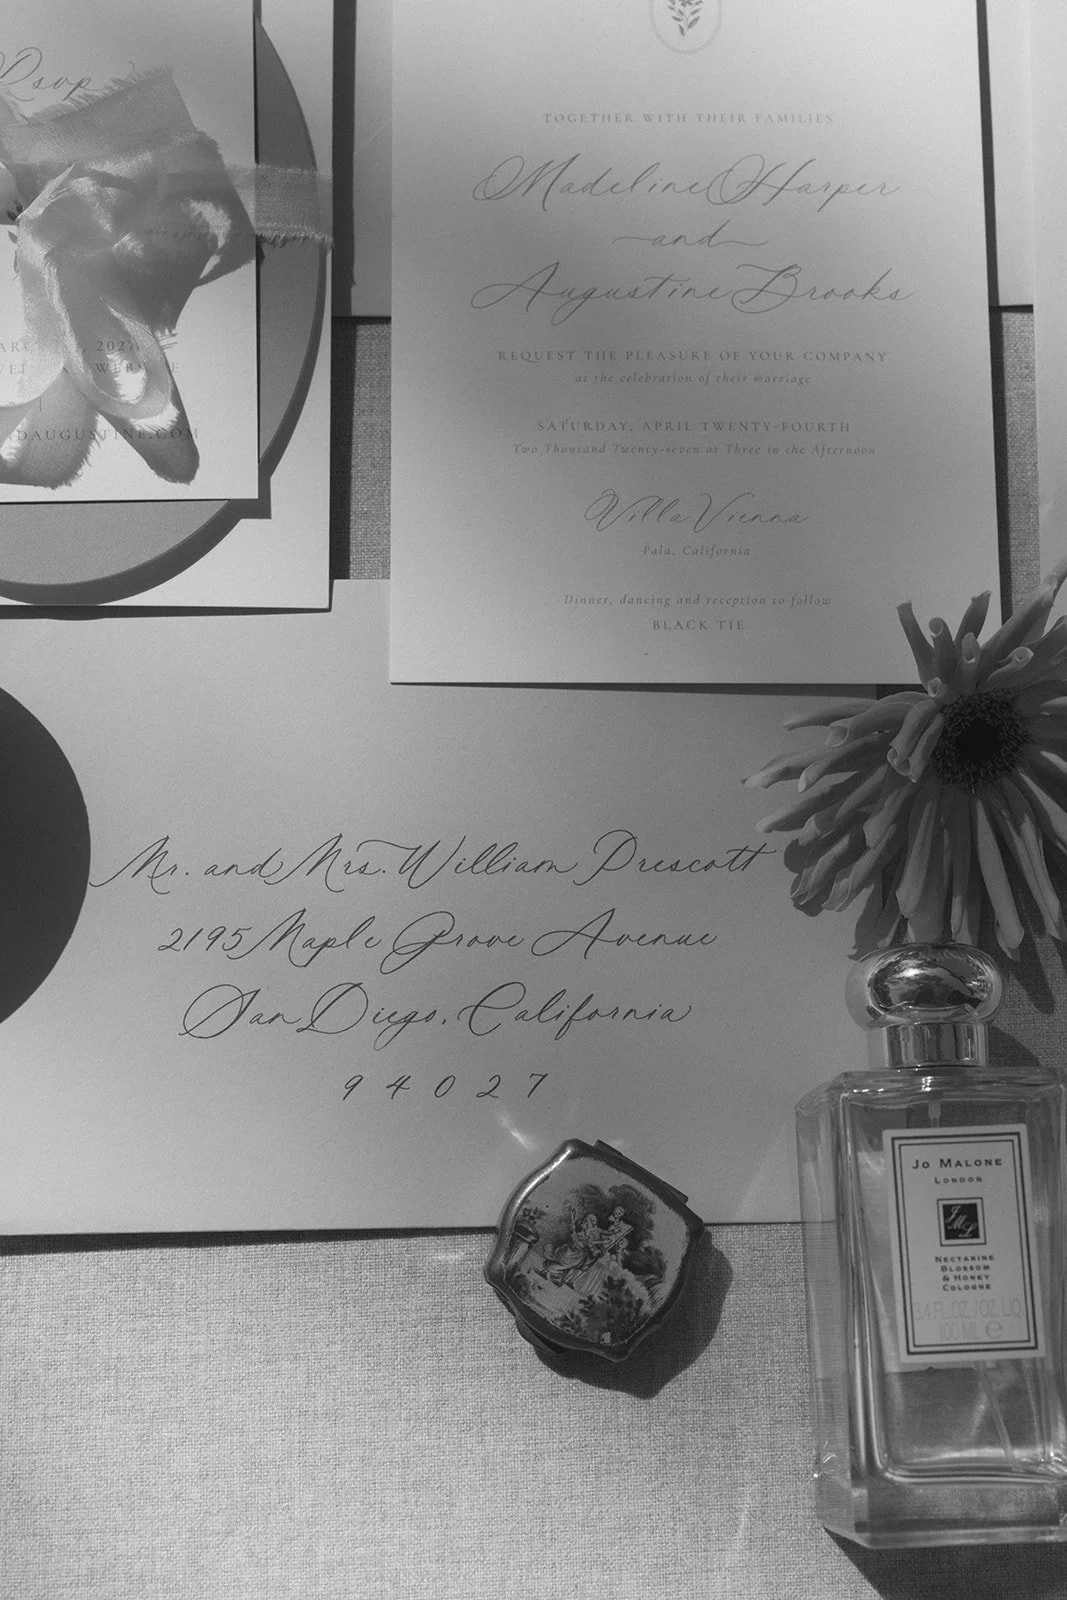 Rsvp
, 2027
DAUGUSTINE.COM
TOGETHER WITH THEIR FAMILIES
Madeline Harper
and
Augustine Brooks
REQUEST THE PLEASURE OF YOUR COMPANY
at the celebration of their marriage
SATURDAY, APRIL TWENTY-FOURTH
Two Thousand Twenty-seven at Three in the Afternoon
Villa Vienna
Pala, California
Dinner, dancing and reception to follow
BLACK TIE
Mr. and Mrs. William Prescott
2195 Maple Grove Avenue
San Diego, California
94027
JO MALONE
LONDON
JML
NECTARINE
BLOSSOM
& HONEY
COLOGNE
3.4 FL.OZ./OZ.LIQ.
100 ML e